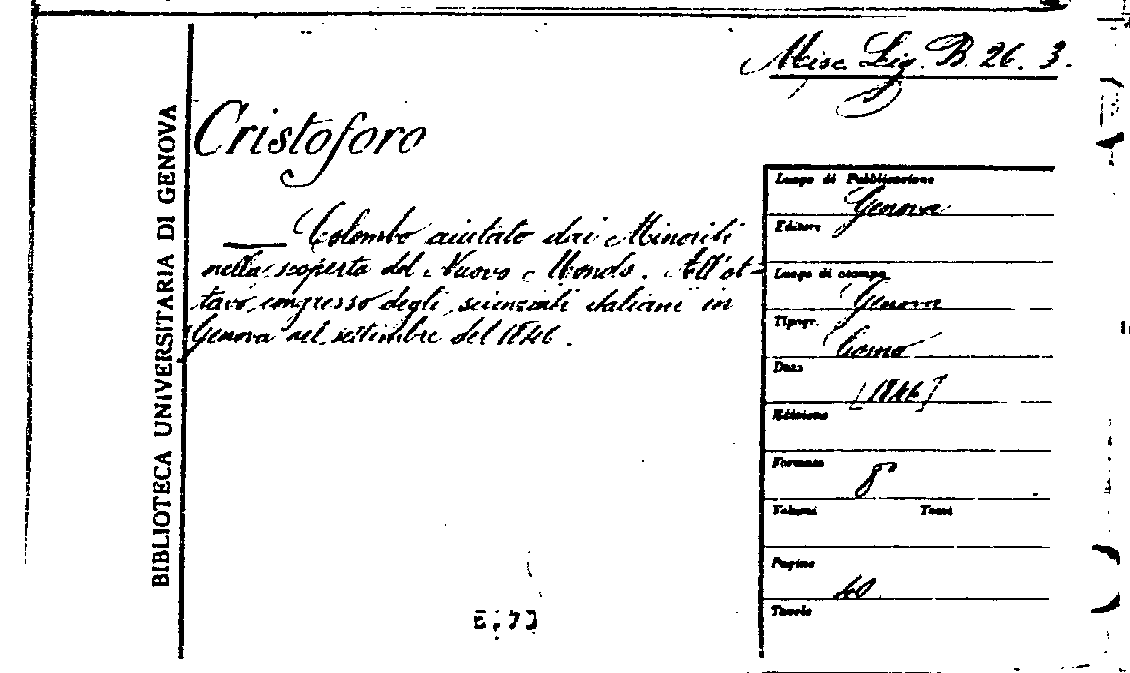 Misc. Lig. B. 26. 3.
BIBLIOTECA UNIVERSITARIA DI GENOVA
Cristoforo
— Colombo aiutato dai Minoriti
nella scoperta del Nuovo Mondo. All'ot-
tavo congresso degli scienziati italiani in
Genova nel settembre del 1846.
Luogo di Pubblicazione
Genova
Editore
Luogo di stampa
Genova
Tipogr.
Como
Data
[1846]
Edizione
Formato
8°
Volumi Tomi
Pagine
40
Tavole